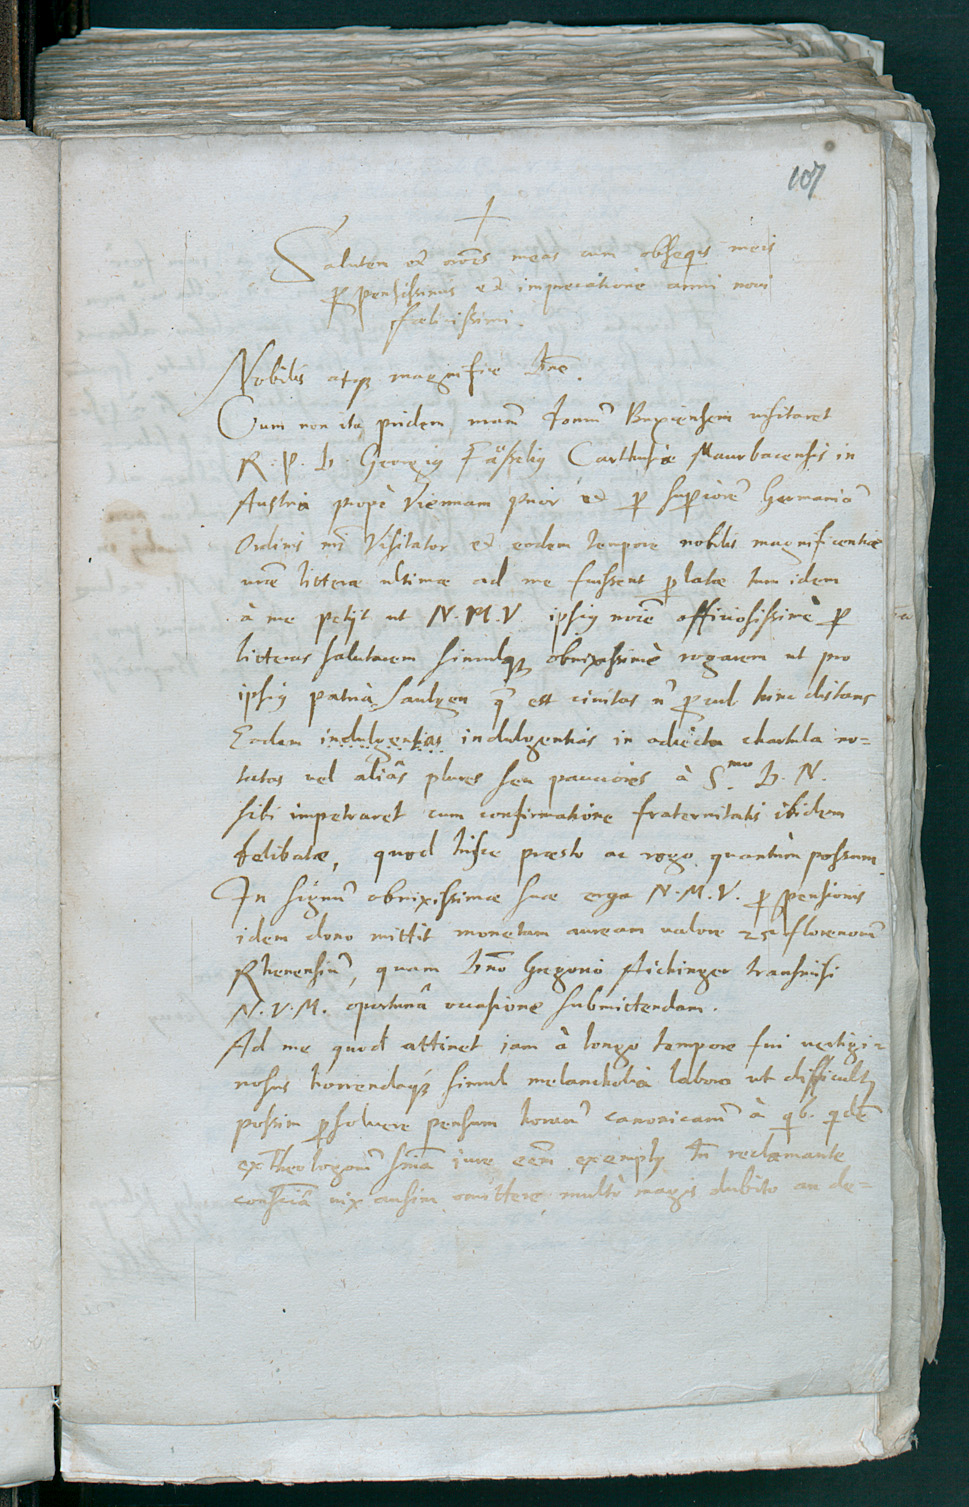 107
Salutem et oroēs meas cum obsequijs meis
ꝓpensissimis et imprecatione anni novi
fœlicissimi.
Nobilis atqꝫ magnifice Dne.
Cum non ita pridem nram domū Buxiensem visitaret
R. P. D. Georgiꝰ Fässeliꝰ Carthusiæ Maurbacensis in
Austria propè Viennam prior et ꝑ superiorē Germaniā
Ordinis nri Visitator et eodem tempore nobilis magnificentiæ
vræ litteræ ultimæ ad me fuissent ꝑlatæ tum idem
à me petijt ut N. M. V. ipsiꝰ noīe officiosissimè ꝑ
litteras salutarem simulqꝫ obnixissimè rogarem ut pro
ipsiꝰ patria Saulgen q̄ est civitas n̄ procul hinc distans
Eadem indulgentias indulgentias in adiecta chartula no=
tatas vel aliâs plures seu pauciores à S.mo D. N.
sibi impetraret cum confirmatione fraternitatis ibidem
delibatæ, quod hisce præsto ac rogo quantum possum.
In signū obnixissimæ suæ erga N. M. V. ꝓpensionis
idem dono mittit monetam auream valore 25 florenorū
Rhenensiū, quam Dno Gregorio Aichinger transmisi
N. V. M. oportunâ occasione submittendam.
Ad me quod attinet iam à longo tempore fui vertigi=
nosus horrendaqꝫ simul melancholia laboro ut difficult̄
possim ꝑsolvere pensum horarū canonicarū à qb. qdē
ex Theologorū sniā iure eēm exemptꝰ tn̄ reclamante
consciā vix ausim omittere, multò magis dubito an de=